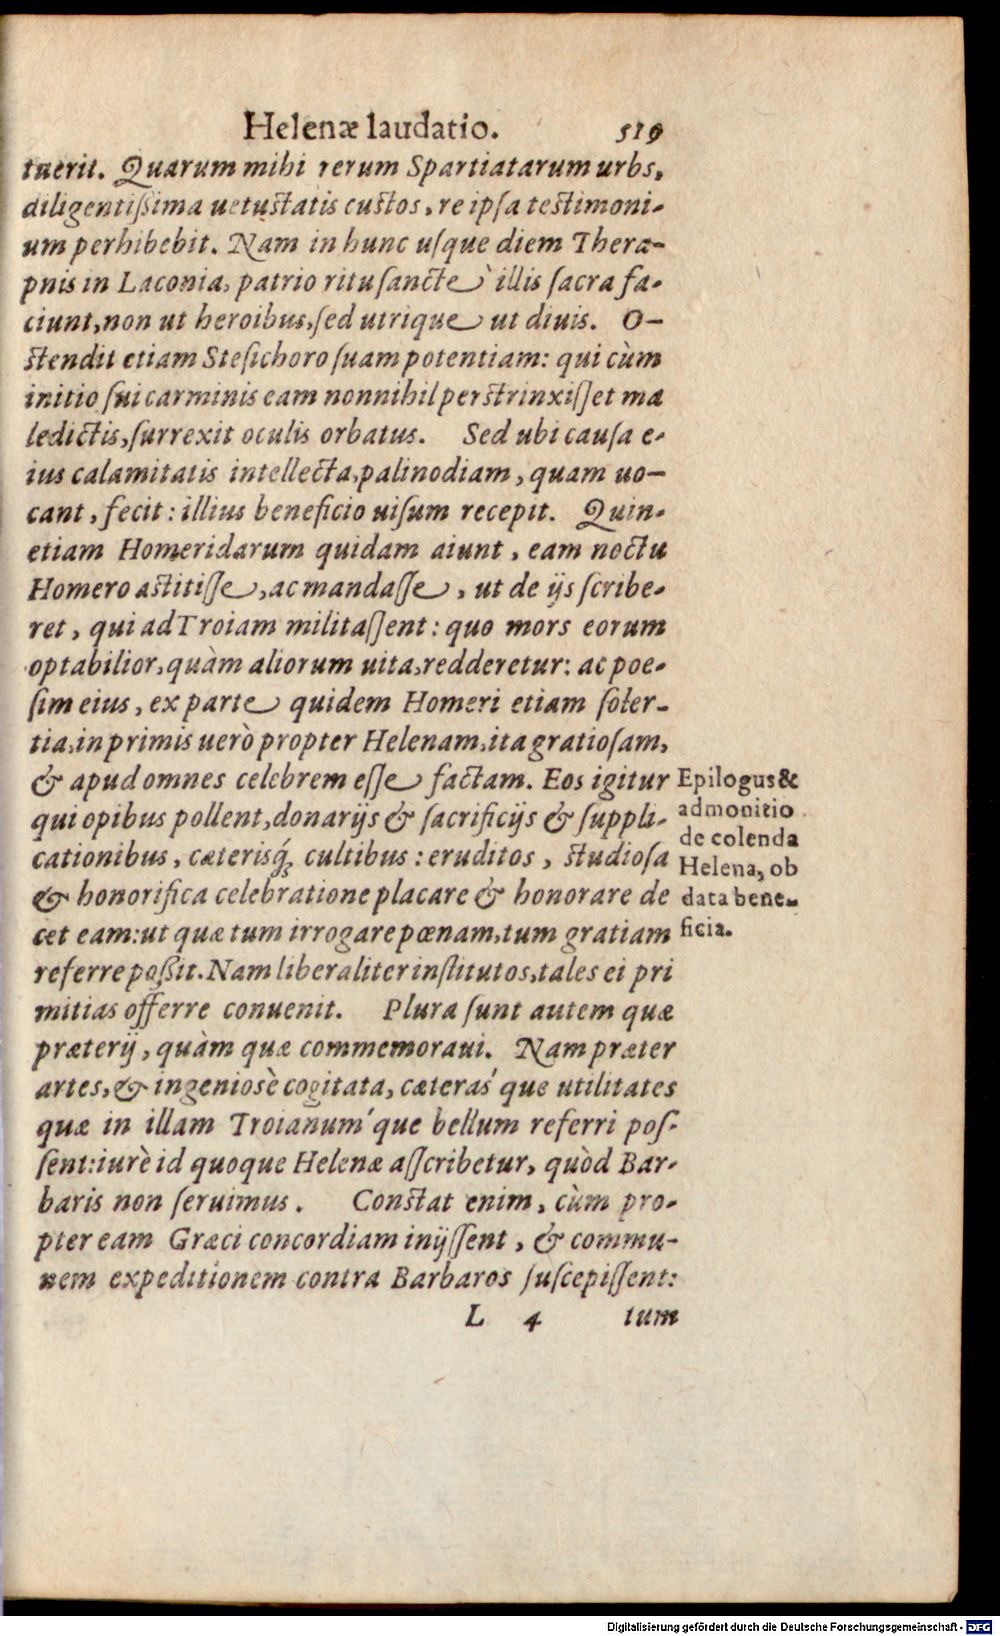 Helenæ laudatio. 519
tuerit. Quarum mihi rerum Spartiatarum urbs,
diligentißima uetustatis custos, re ipsa testimoni-
um perhibebit. Nam in hunc usque diem Thera-
pnis in Laconia, patrio ritu sanctè illis sacra fa-
ciunt, non ut heroibus, sed utrique ut diuis. O-
stendit etiam Stesichoro suam potentiam: qui cùm
initio sui carminis eam nonnihil perstrinxisset ma
ledictis, surrexit oculis orbatus. Sed ubi causa e-
ius calamitatis intellecta, palinodiam, quam uo-
cant, fecit: illius beneficio uisum recepit. Quin-
etiam Homeridarum quidam aiunt, eam noctu
Homero astitisse, ac mandasse, ut de ijs scribe-
ret, qui ad Troiam militassent: quo mors eorum
optabilior, quàm aliorum uita, redderetur: ac poe-
sim eius, ex parte quidem Homeri etiam soler-
tia, inprimis uerò propter Helenam, ita gratiosam,
& apud omnes celebrem esse factam. Eos igitur
qui opibus pollent, donarijs & sacrificijs & suppli-
cationibus, cæterisq́; cultibus: eruditos, studiosa
& honorifica celebratione placare & honorare de
cet eam: ut quæ tum irrogare pœnam, tum gratiam
referre poßit. Nam liberaliter institutos, tales ei pri
mitias offerre conuenit. Plura sunt autem quæ
præterij, quàm quæ commemoraui. Nam præter
artes, & ingeniosè cogitata, cæteraśque utilitates
quæ in illam Troianuḿque bellum referri pos-
sent: iurè id quoque Helenæ asscribetur, quòd Bar-
baris non seruimus. Constat enim, cùm pro-
pter eam Græci concordiam inijssent, & commu-
nem expeditionem contra Barbaros suscepissent:
L 4 tum
Epilogus &
admonitio
de colenda
Helena, ob
data bene-
ficia.
Digitalisierung gefördert durch die Deutsche Forschungsgemeinschaft - DFG